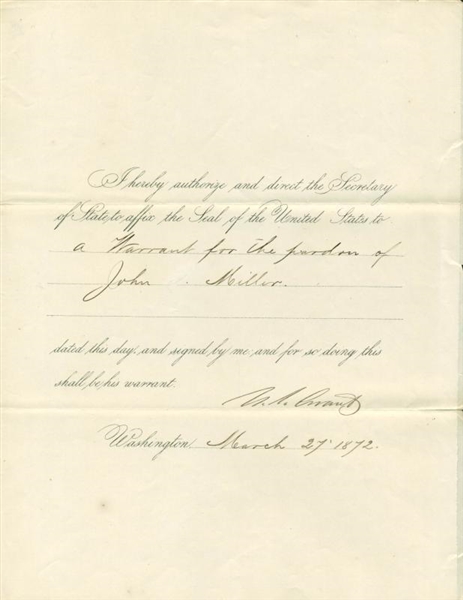 I hereby authorize and direct the Secretary
of State to affix the Seal of the United States to
a Warrant for the pardon of
John Miller.
dated this day, and signed by me, and for so doing this
shall be his warrant.
U. S. Grant
Washington, March 27, 1872.